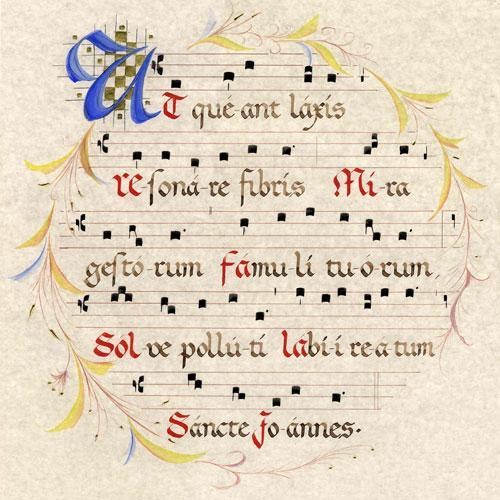 UT que-ant láxis
re soná-re fibris Mi-ra
gestó-rum fámu-lí tu-ó-rum,
Sol-ve pollú-ti lábi-i re-a-tum
Sáncte Jo-ánnes.